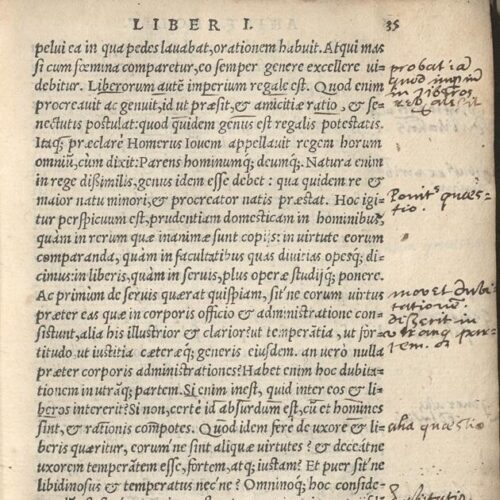 LIBER I.
35
pelui ea in qua pedes lauabat, orationem habuit. Atqui mas
si cum fœmina comparetur, eo semper genere excellere ui-
debitur. Liberorum autē imperium regale est. Quod enim
procreauit ac genuit, id ut præsit, & amicitiæ ratio, & se-
nectutis postulat: quod quidem genus est regalis potestatis.
Itaq; præclarè Homerus Iouem appellauit regem horum
omniū, cùm dixit: Parens hominumq; deumq;. Natura enim
in rege dissimilis, genus idem esse debet: qua quidem re &
maior natu minori, & procreator natis præstat. Hoc igi-
tur perspicuum est, prudentiam domesticam in hominibus,
quàm in rerum quæ inanimæ sunt copijs: in uirtute eorum
comparanda, quàm in facultatibus quas diuitias opesq; di-
cimus: in liberis, quàm in seruis, plus operæ studijq; ponere.
Ac primùm de seruis quærat quispiam, sit'ne eorum uirtus
præter eas quæ in corporis officio & administratione con-
sistunt, alia his illustrior & clarior? ut temperātia, ut for-
titudo, ut iustitia cæteræq; generis eiusdem. an uerò nulla
præter corporis administrationes? Habet enim hoc dubita-
tionem in utrāq; partem. Si enim inest, quid inter eos & li-
beros intererit? Si non, certè id absurdum est, cū et homines
sint, & rationis compotes. Quod idem ferè de uxore & li-
beris quæritur, eorum'ne sint aliquæ uirtutes? & deceát'ne
uxorem temperātem esse, fortem, atq; iustam? Et puer sit'ne
libidinosus & temperatus nec'ne? Omninoq; hoc conside-
probat: a
quod impiū
in liberos
regale sit
Ponit quæs-
tio.
movet dubi
tationem.
disserit in
utranq par-
tem.
alia quæstio